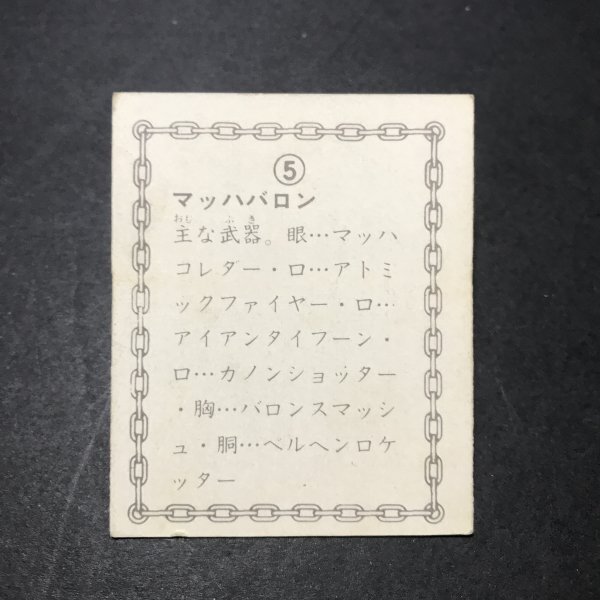 ⑤
マッハバロン
おし ぶき
主な武器。眼…マッハ
コレダー・口…アトミ
ックファイヤー・口…
アイアンタイフーン・
口…カノンショッター
・胸…バロンスマッシ
ュ・胴…ベルヘンロケ
ッター